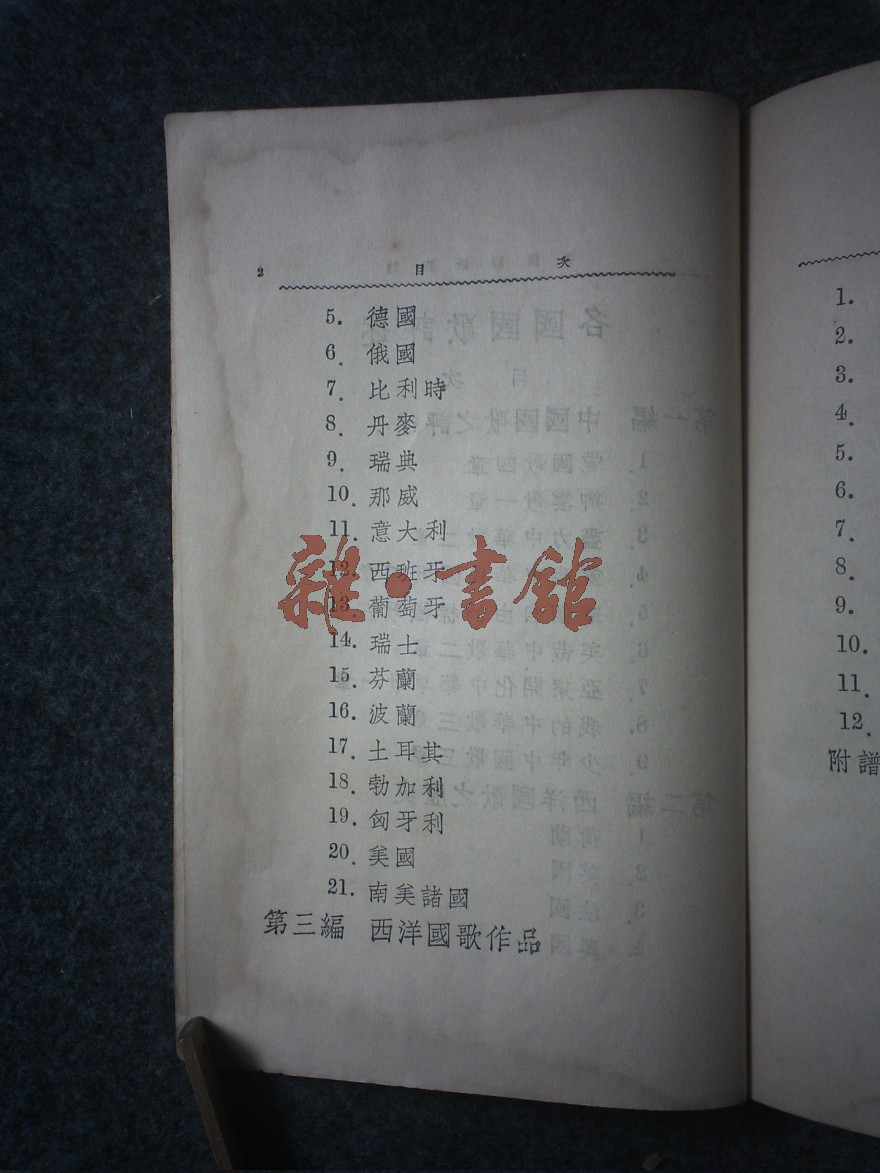 2 目 次
5. 德國
6. 俄國
7. 比利時
8. 丹麥
9. 瑞典
10. 那威
11. 意大利
12. 西班牙
13. 葡萄牙
14. 瑞士
15. 芬蘭
16. 波蘭
17. 土耳其
18. 勃加利
19. 匈牙利
20. 美國
21. 南美諸國
第三編 西洋國歌作品
雜·書館
1.
2.
3.
4.
5.
6.
7.
8.
9.
10.
11.
12.
附譜